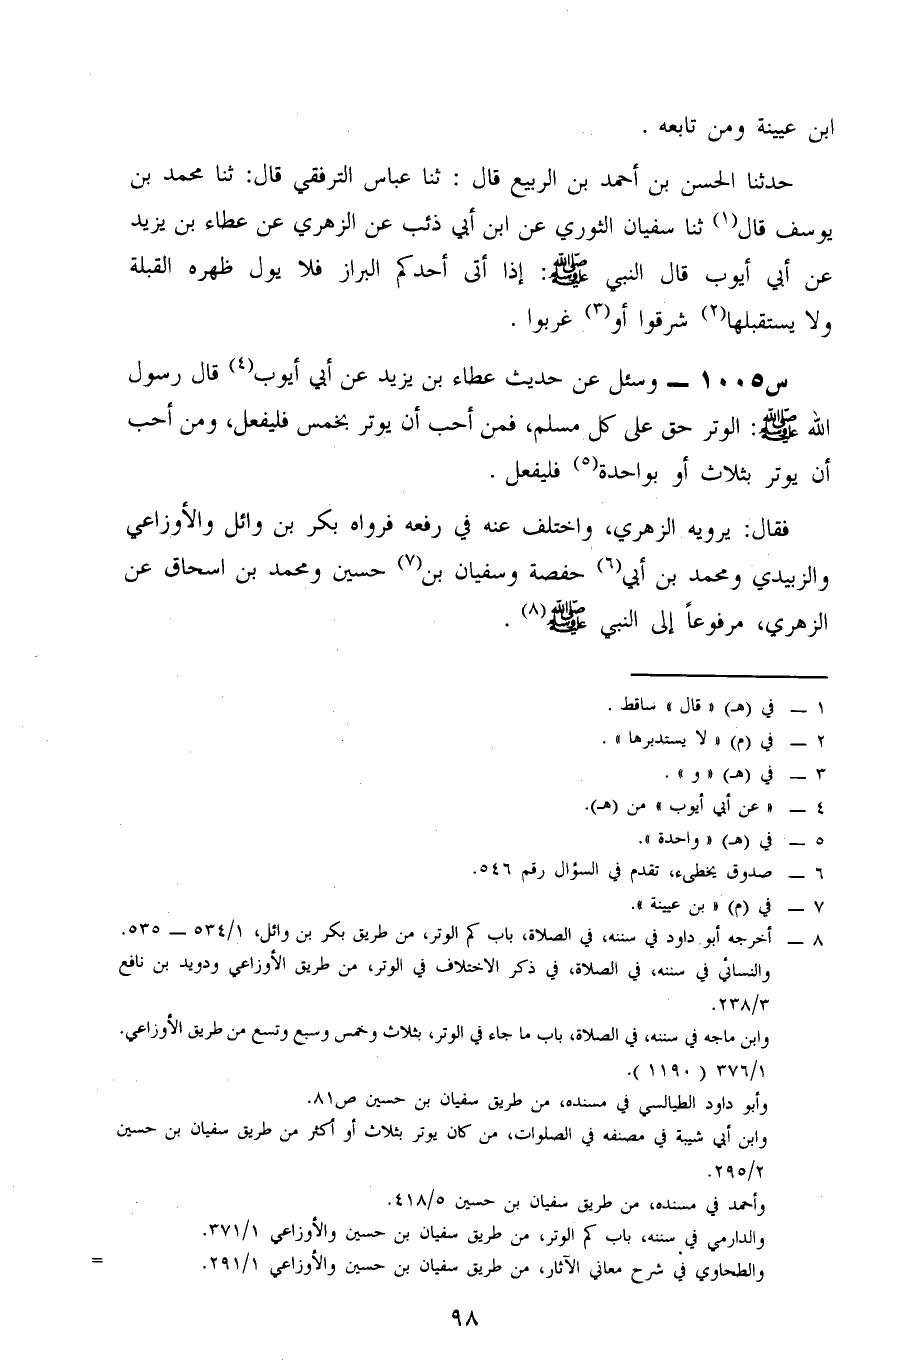 ابن عيينة ومن تابعه .
حدثنا الحسن بن أحمد بن الربيع قال : ثنا عباس الترفقي قال: ثنا محمد بن
يوسف قال(١) ثنا سفيان الثوري عن ابن أبي ذئب عن الزهري عن عطاء بن يزيد
عن أبي أيوب قال النبي ﷺ: إذا أتى أحدكم البراز فلا يول ظهره القبلة
ولا يستقبلها(٢) شرقوا أو(٣) غربوا .
س١٠٠٥ ــ وسئل عن حديث عطاء بن يزيد عن أبي أيوب(٤) قال رسول
الله ﷺ: الوتر حق على كل مسلم، فمن أحب أن يوتر بخمس فليفعل، ومن أحب
أن يوتر بثلاث أو بواحدة(٥) فليفعل .
فقال: يرويه الزهري، واختلف عنه في رفعه فرواه بكر بن وائل والأوزاعي
والزبيدي ومحمد بن أبي(٦) حفصة وسفيان بن(٧) حسين ومحمد بن اسحاق عن
الزهري، مرفوعاً إلى النبي ﷺ(٨) .
١ ــ في (هـ) « قال » ساقط .
٢ ــ في (م) « لا يستدبرها » .
٣ ــ في (هـ) « و » .
٤ ــ « عن أبي أيوب » من (هـ).
٥ ــ في (هـ) « واحدة ».
٦ ــ صدوق يخطىء، تقدم في السؤال رقم ٥٤٦.
٧ ــ في (م) « بن عيينة ».
٨ ــ أخرجه أبو داود في سننه، في الصلاة، باب كم الوتر، من طريق بكر بن وائل، ٥٣٤/١ ــ ٥٣٥.
والنسائي في سننه، في الصلاة، في ذكر الاختلاف في الوتر، من طريق الأوزاعي ودويد بن نافع
٢٣٨/٣.
وابن ماجه في سننه، في الصلاة، باب ما جاء في الوتر، بثلاث وخمس وسبع وتسع من طريق الأوزاعي.
٣٧٦/١ ( ١١٩٠ ).
وأبو داود الطيالسي في مسنده، من طريق سفيان بن حسين ص٨١.
وابن أبي شيبة في مصنفه في الصلوات، من كان يوتر بثلاث أو أكثر من طريق سفيان بن حسين
٢٩٥/٢.
وأحمد في مسنده، من طريق سفيان بن حسين ٤١٨/٥.
والدارمي في سننه، باب كم الوتر، من طريق سفيان بن حسين والأوزاعي ٣٧١/١.
والطحاوي في شرح معاني الآثار، من طريق سفيان بن حسين والأوزاعي ٢٩١/١. =
٩٨